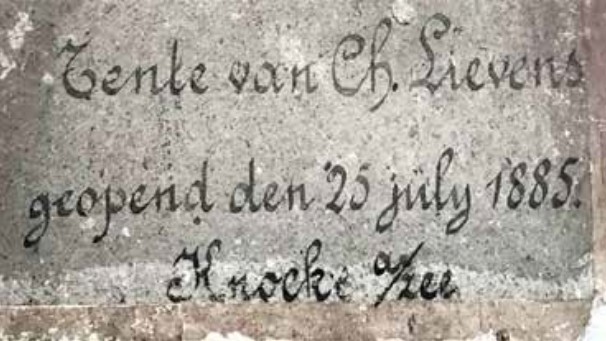 Tente van Ch. Lievens
geopend den 25 july 1885.
Knocke a/zee